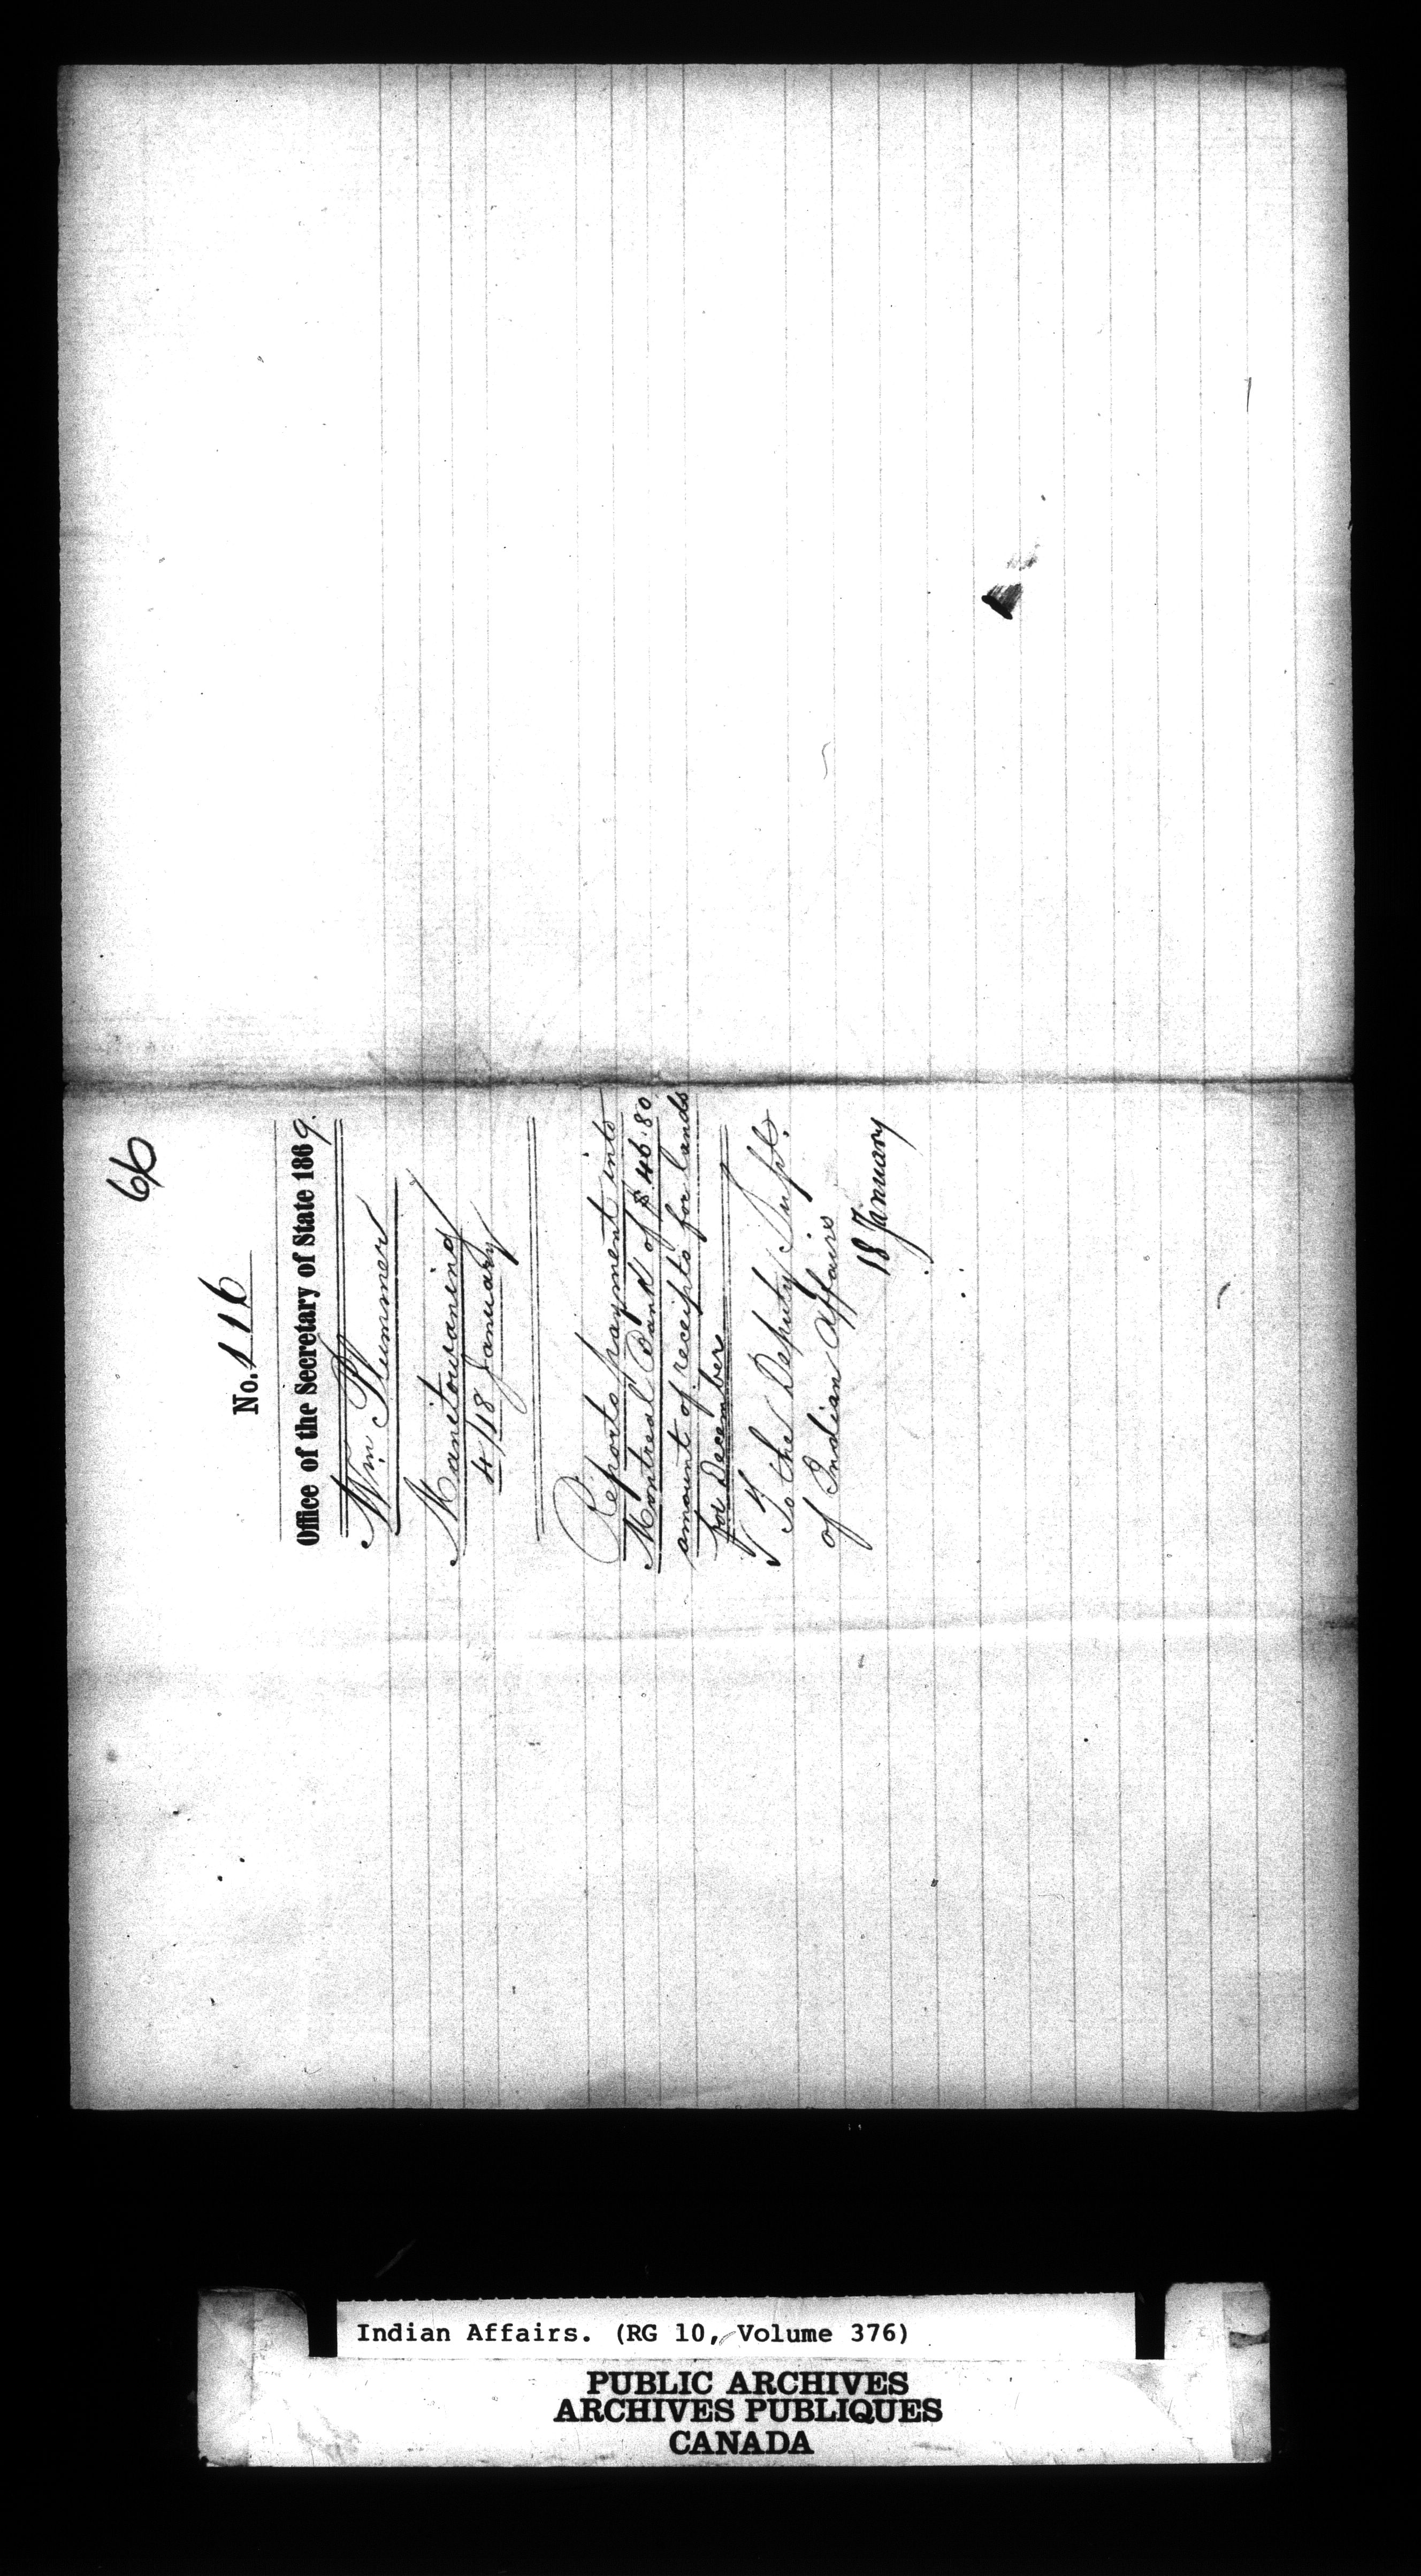 66
No. 116
Office of the Secretary of State 1869.
Wm Plummer
Manitowaning
4/18 January
Reports payment into
Montreal Bank of $46.80
amount of receipts for lands
for December
To the Deputy Supt.
of Indian Affairs
18 January
Indian Affairs. (RG 10, Volume 376)
PUBLIC ARCHIVES
ARCHIVES PUBLIQUES
CANADA